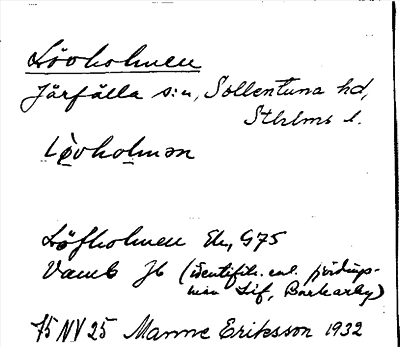 Lövholmen
Järfälla s:n, Sollentuna hd,
Sthlms l.
Løvholmən
Löfholmen Ek, G75
Vamb Jb (identifik. enl. jordägs-
man Lif, Barkarby)
75 NV 25 Manne Eriksson 1932